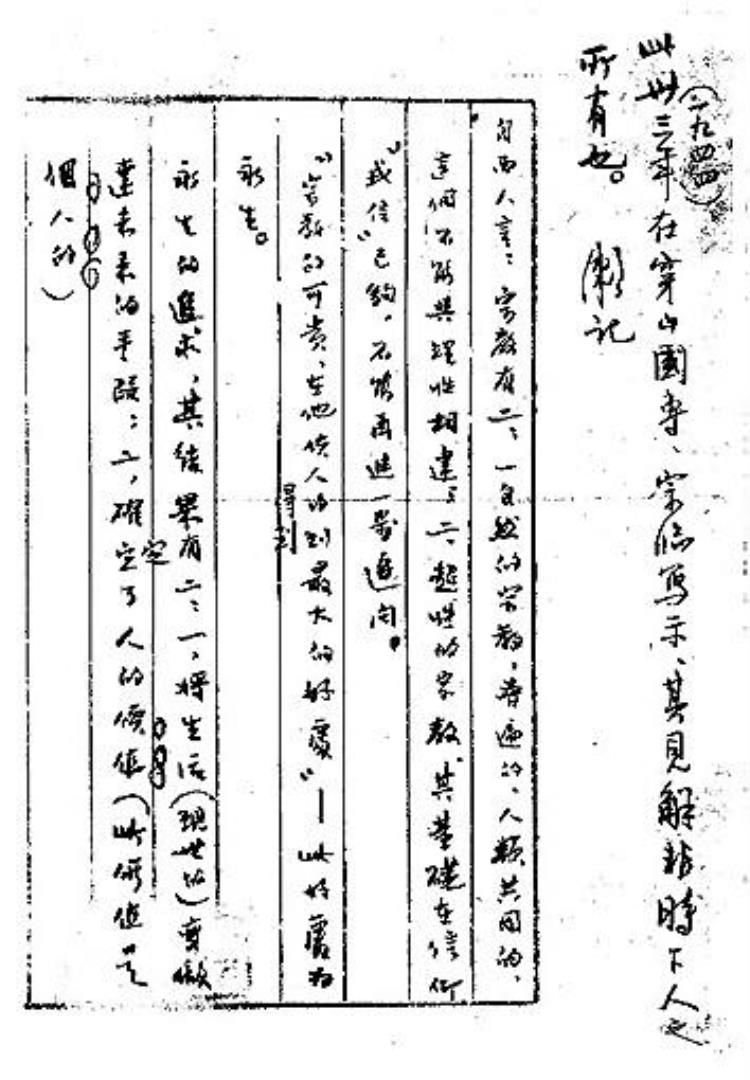 (一九四四)
此卅三年在穿山國专、宗临写示、其見解非時下人之
所有也。 漱記
自西人言:宗教有二:一自然的宗教,普遍的、人類共同的,
這個不能與理性相違;二超性的宗教,其基礎在信仰
"我信"已夠,不必再進一步追问。
"宗教的可貴,在他使人得到最大的好處"—此好處为
得到
永生。
永生的追求,其结果有二:一,将生活(現世的)变做
達未来的手段;二,確定了人的價值(此價值是
定
個人的)